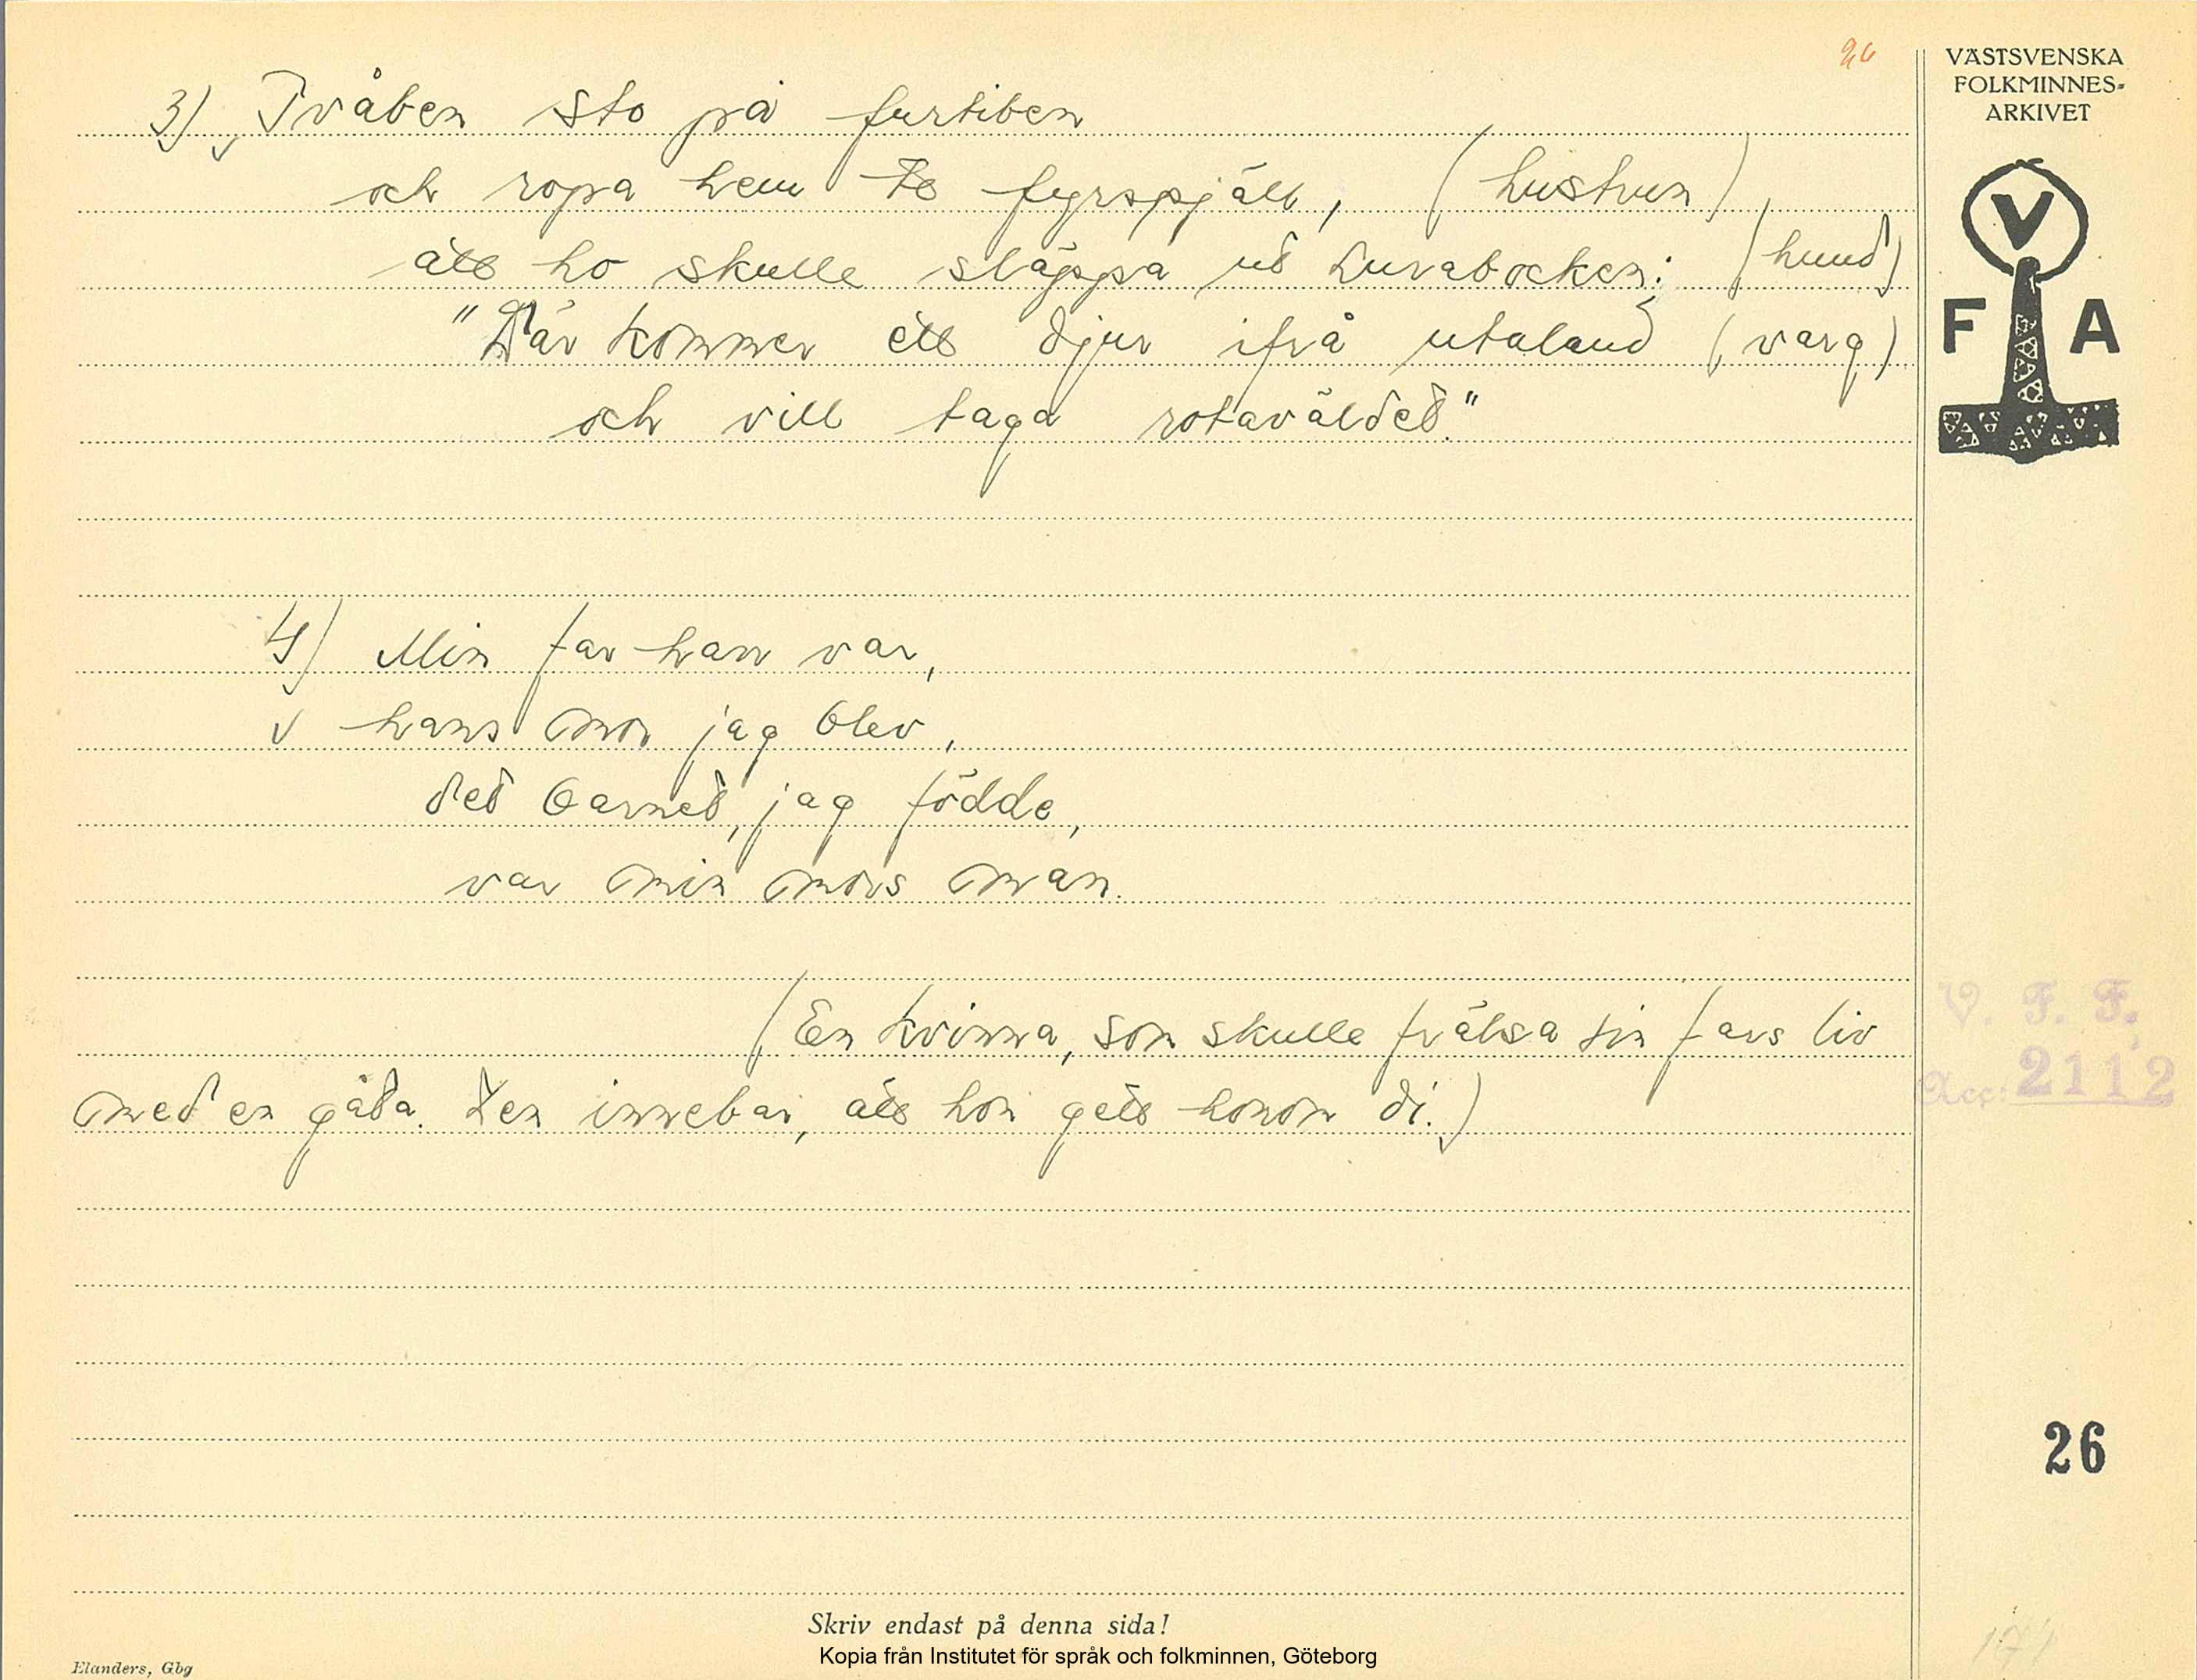 26
VÄSTSVENSKA
FOLKMINNES-
ARKIVET
V
F A
3) Tvåben sto på furtiben
och ropa hem te fyrspjäll, (hustrun)
att ho skulle släppa ut Luvabocken: (hund)
"Där kommer ett djur ifrå utaland (varg)
och vill taga rotaväldet."
4) Min far han var,
hans mor jag blev,
det barnet, jag födde,
var min mors man.
(En kvinna, som skulle frälsa sin fars liv
med en gåta. Den innebar, att hon gett honom di.)
V. F. F.
Acc: 2112
26
Skriv endast på denna sida!
Kopia från Institutet för språk och folkminnen, Göteborg
Elanders, Gbg